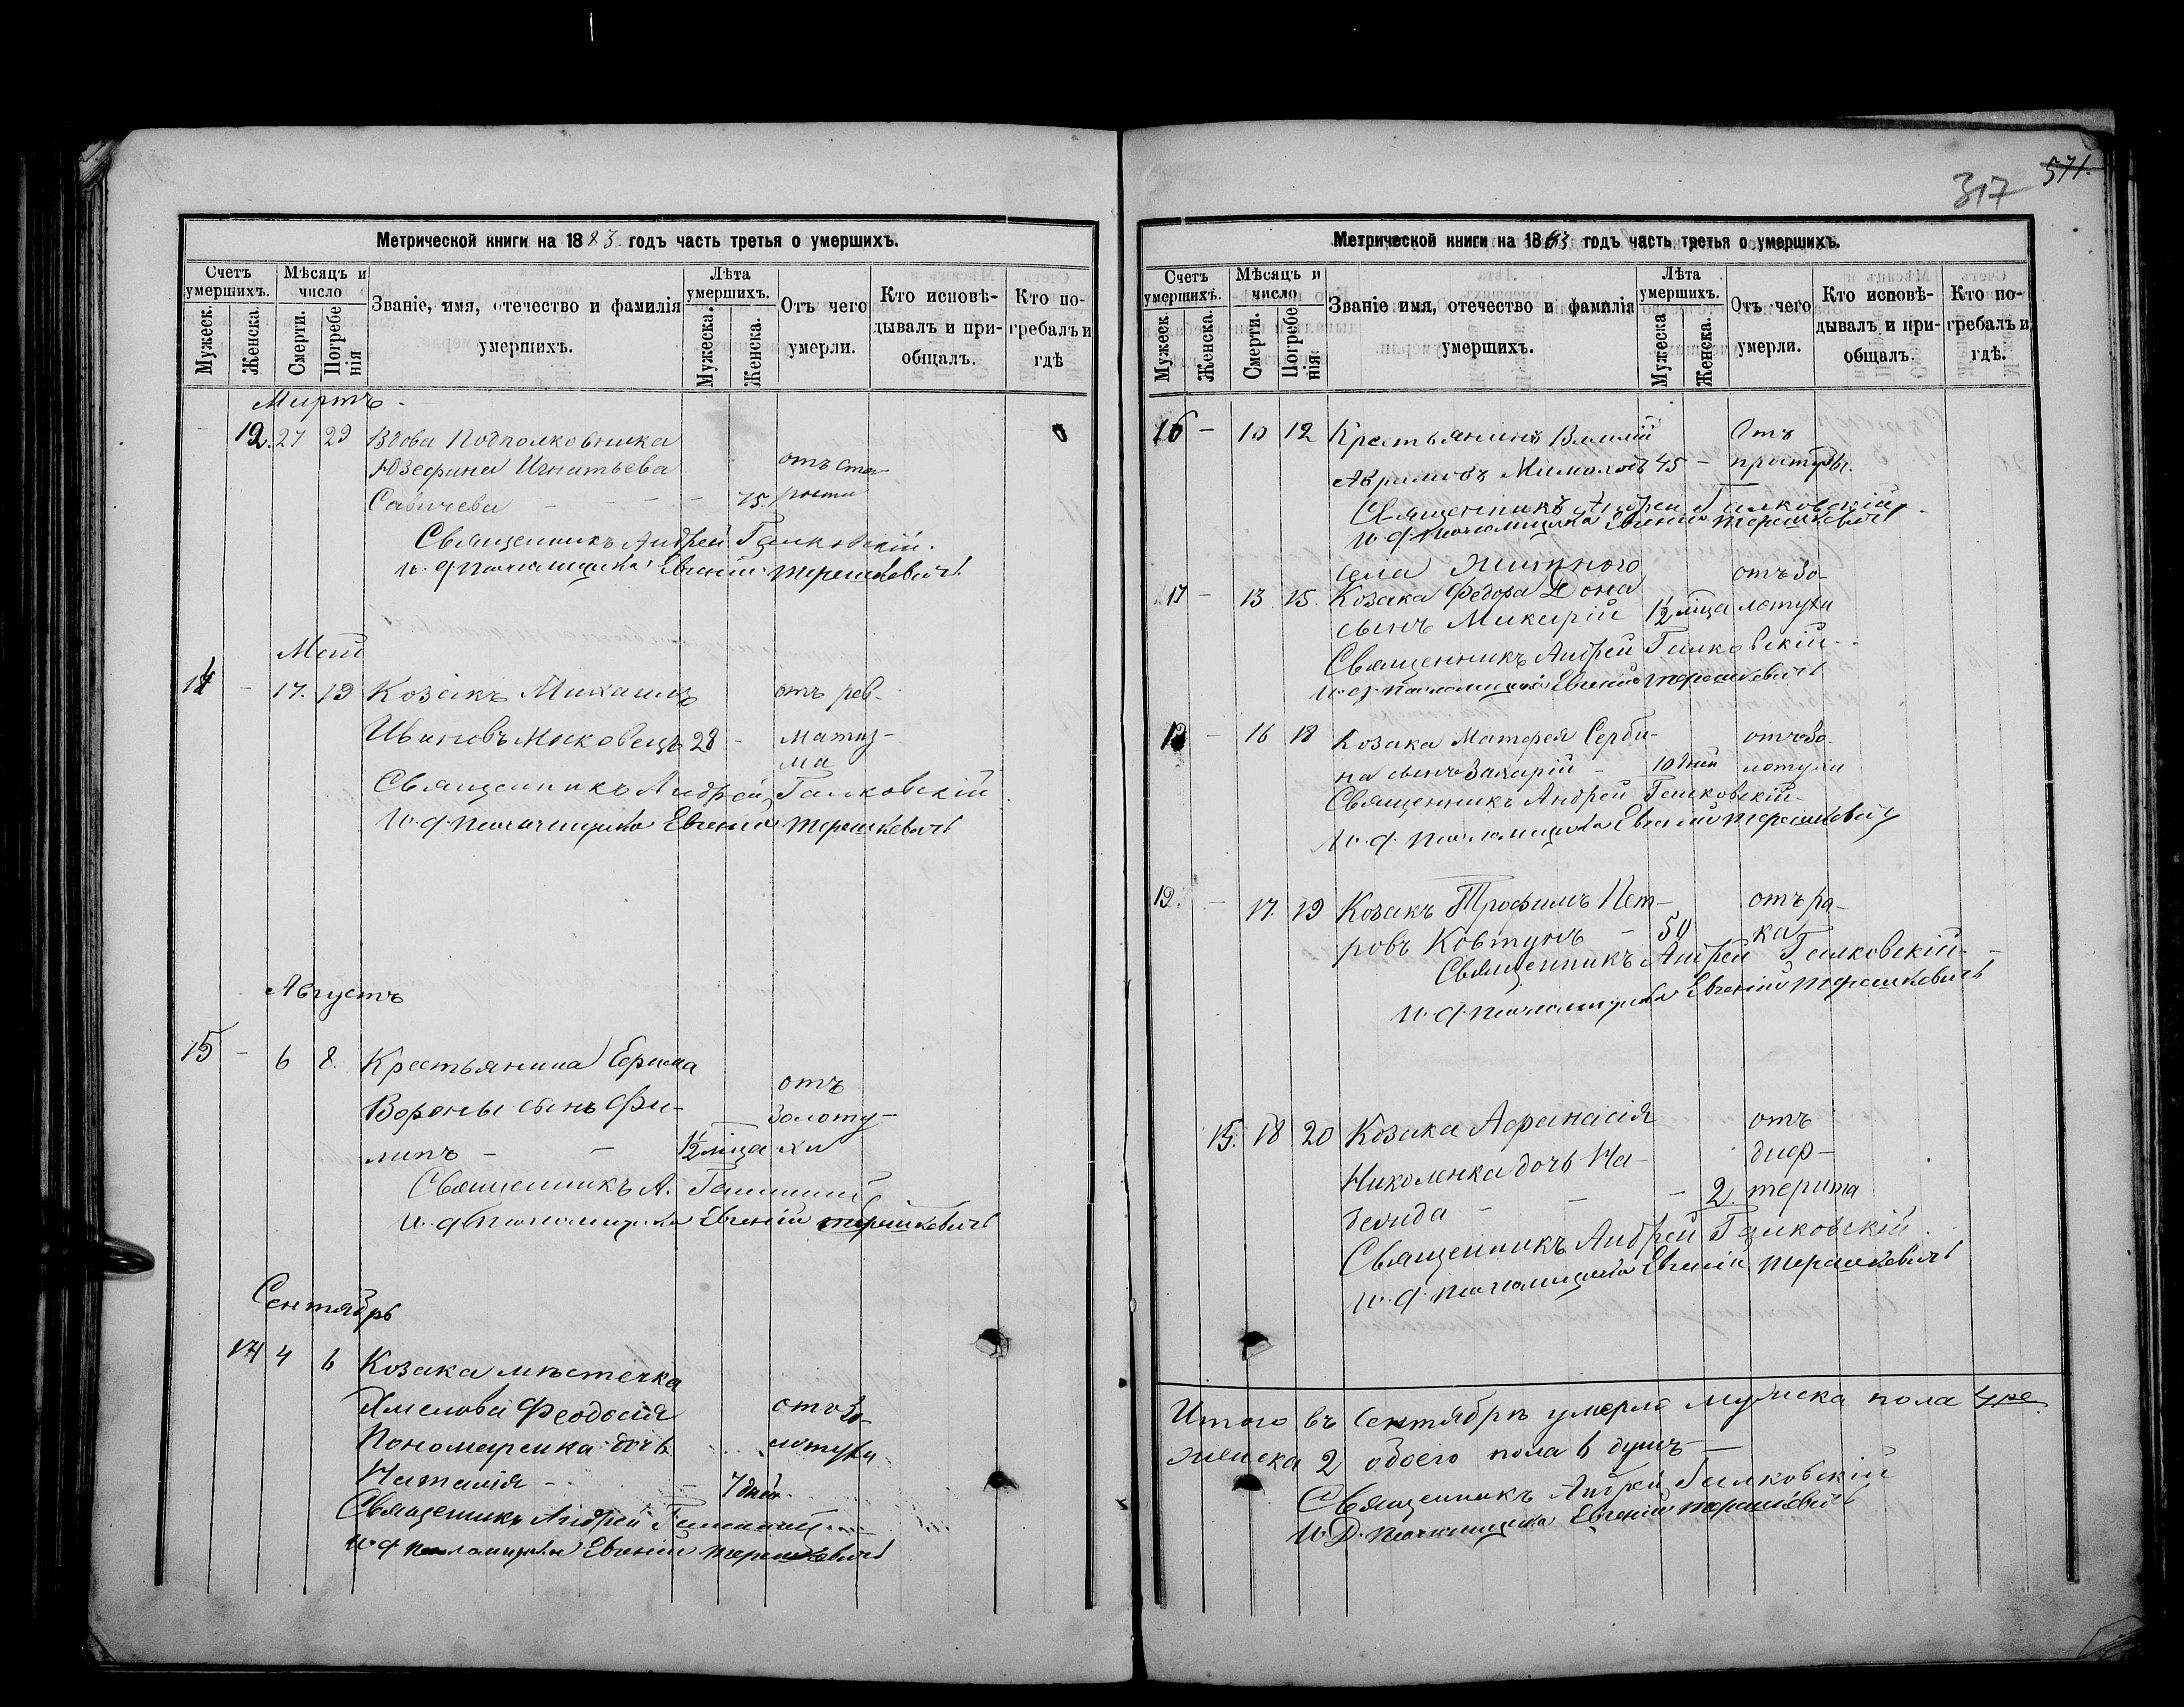 Метрической книги на 1883 годъ часть третья о умершихъ.
Счетъ умершихъ.
Мѣсяцъ и число
Званіе, имя, отечество и фамилія умершихъ.
Лѣта умершихъ.
Отъ чего умерли.
Кто исповѣ-дывалъ и при-общалъ.
Кто по-гребалъ и гдѣ
Мужеск.
Женска.
Смерти.
Погребенія
Мужеска.
Женска.
Мартъ
- 12. 27 29 Вдова Подполковника
Юзефина Игнатьева отъ ста-
Савичева - - - - 75. рости
Священникъ Андрей Галковскій.
и. д. Евгеній Терешкевичъ
Май
14 - 17. 19 Козакъ Михаилъ отъ рев-
Ивановъ 28 - матиз-
ма
Священникъ Андрей Галковскій
и. д. Евгеній Терешкевичъ
Августъ
15 - 6 8. Крестьянина Ефима
отъ
Вороны сынъ Фи- золоту-
липъ - - 1/2 мѣца хи
Священникъ А. Галковскій
и. д. Евгеній Терешкевичъ
Сентябрь
14 4 6 Козака мѣстечка
Хмелова Феодосія отъ зо-
Пономаренка дочь лотухи
Наталія - - 7 дней
Священникъ Андрей Галковскій
и. д. Евгеній Терешкевичъ
317 571.
Метрической книги на 1883 годъ часть третья о умершихъ.
Счетъ умершихъ.
Мѣсяцъ и число
Званіе имя, отечество и фамилія умершихъ.
Лѣта умершихъ.
Отъ чего умерли.
Кто исповѣ-дывалъ и при-общалъ.
Кто по-гребалъ и гдѣ.
Мужеск.
Женска.
Смерти.
Погребенія.
Мужеска
Женска.
16 - 10 12 Крестьянинъ Отъ
45 - простуды.
Священникъ Андрей Галковскій
и. д. Евгеній Терешкевичъ
села отъ зо-
17 - 13 15. Козака Федора Дона
сынъ Макарій 1/2 мѣца лотухи
Священникъ Андрей Галковскій
и. д. Евгеній Терешкевичъ
18 - 16 18 Козака Матфея Серби- отъ зо-
на сынъ Захарій - 10 дней лотухи
Священникъ Андрей Галковскій
и. д. Евгеній Терешкевичъ
19. - 17. 19 Козакъ Трофимъ Пет- отъ ра-
ровъ Ковтунъ - 50 ка
Священникъ Андрей Галковскій
и. д. Евгеній Терешкевичъ
15. 18 20 Козака Афанасія отъ
Николенка дочь На- диф-
дежда - - - 2. терита
Священникъ Андрей Галковскій
и. д. Евгеній Терешкевичъ
Итого въ Сентябрѣ умерло мужеска пола
женска 2 обоего пола 6 душъ -
Священникъ Андрей Галковскій
И. Д. Евгеній Терешкевичъ